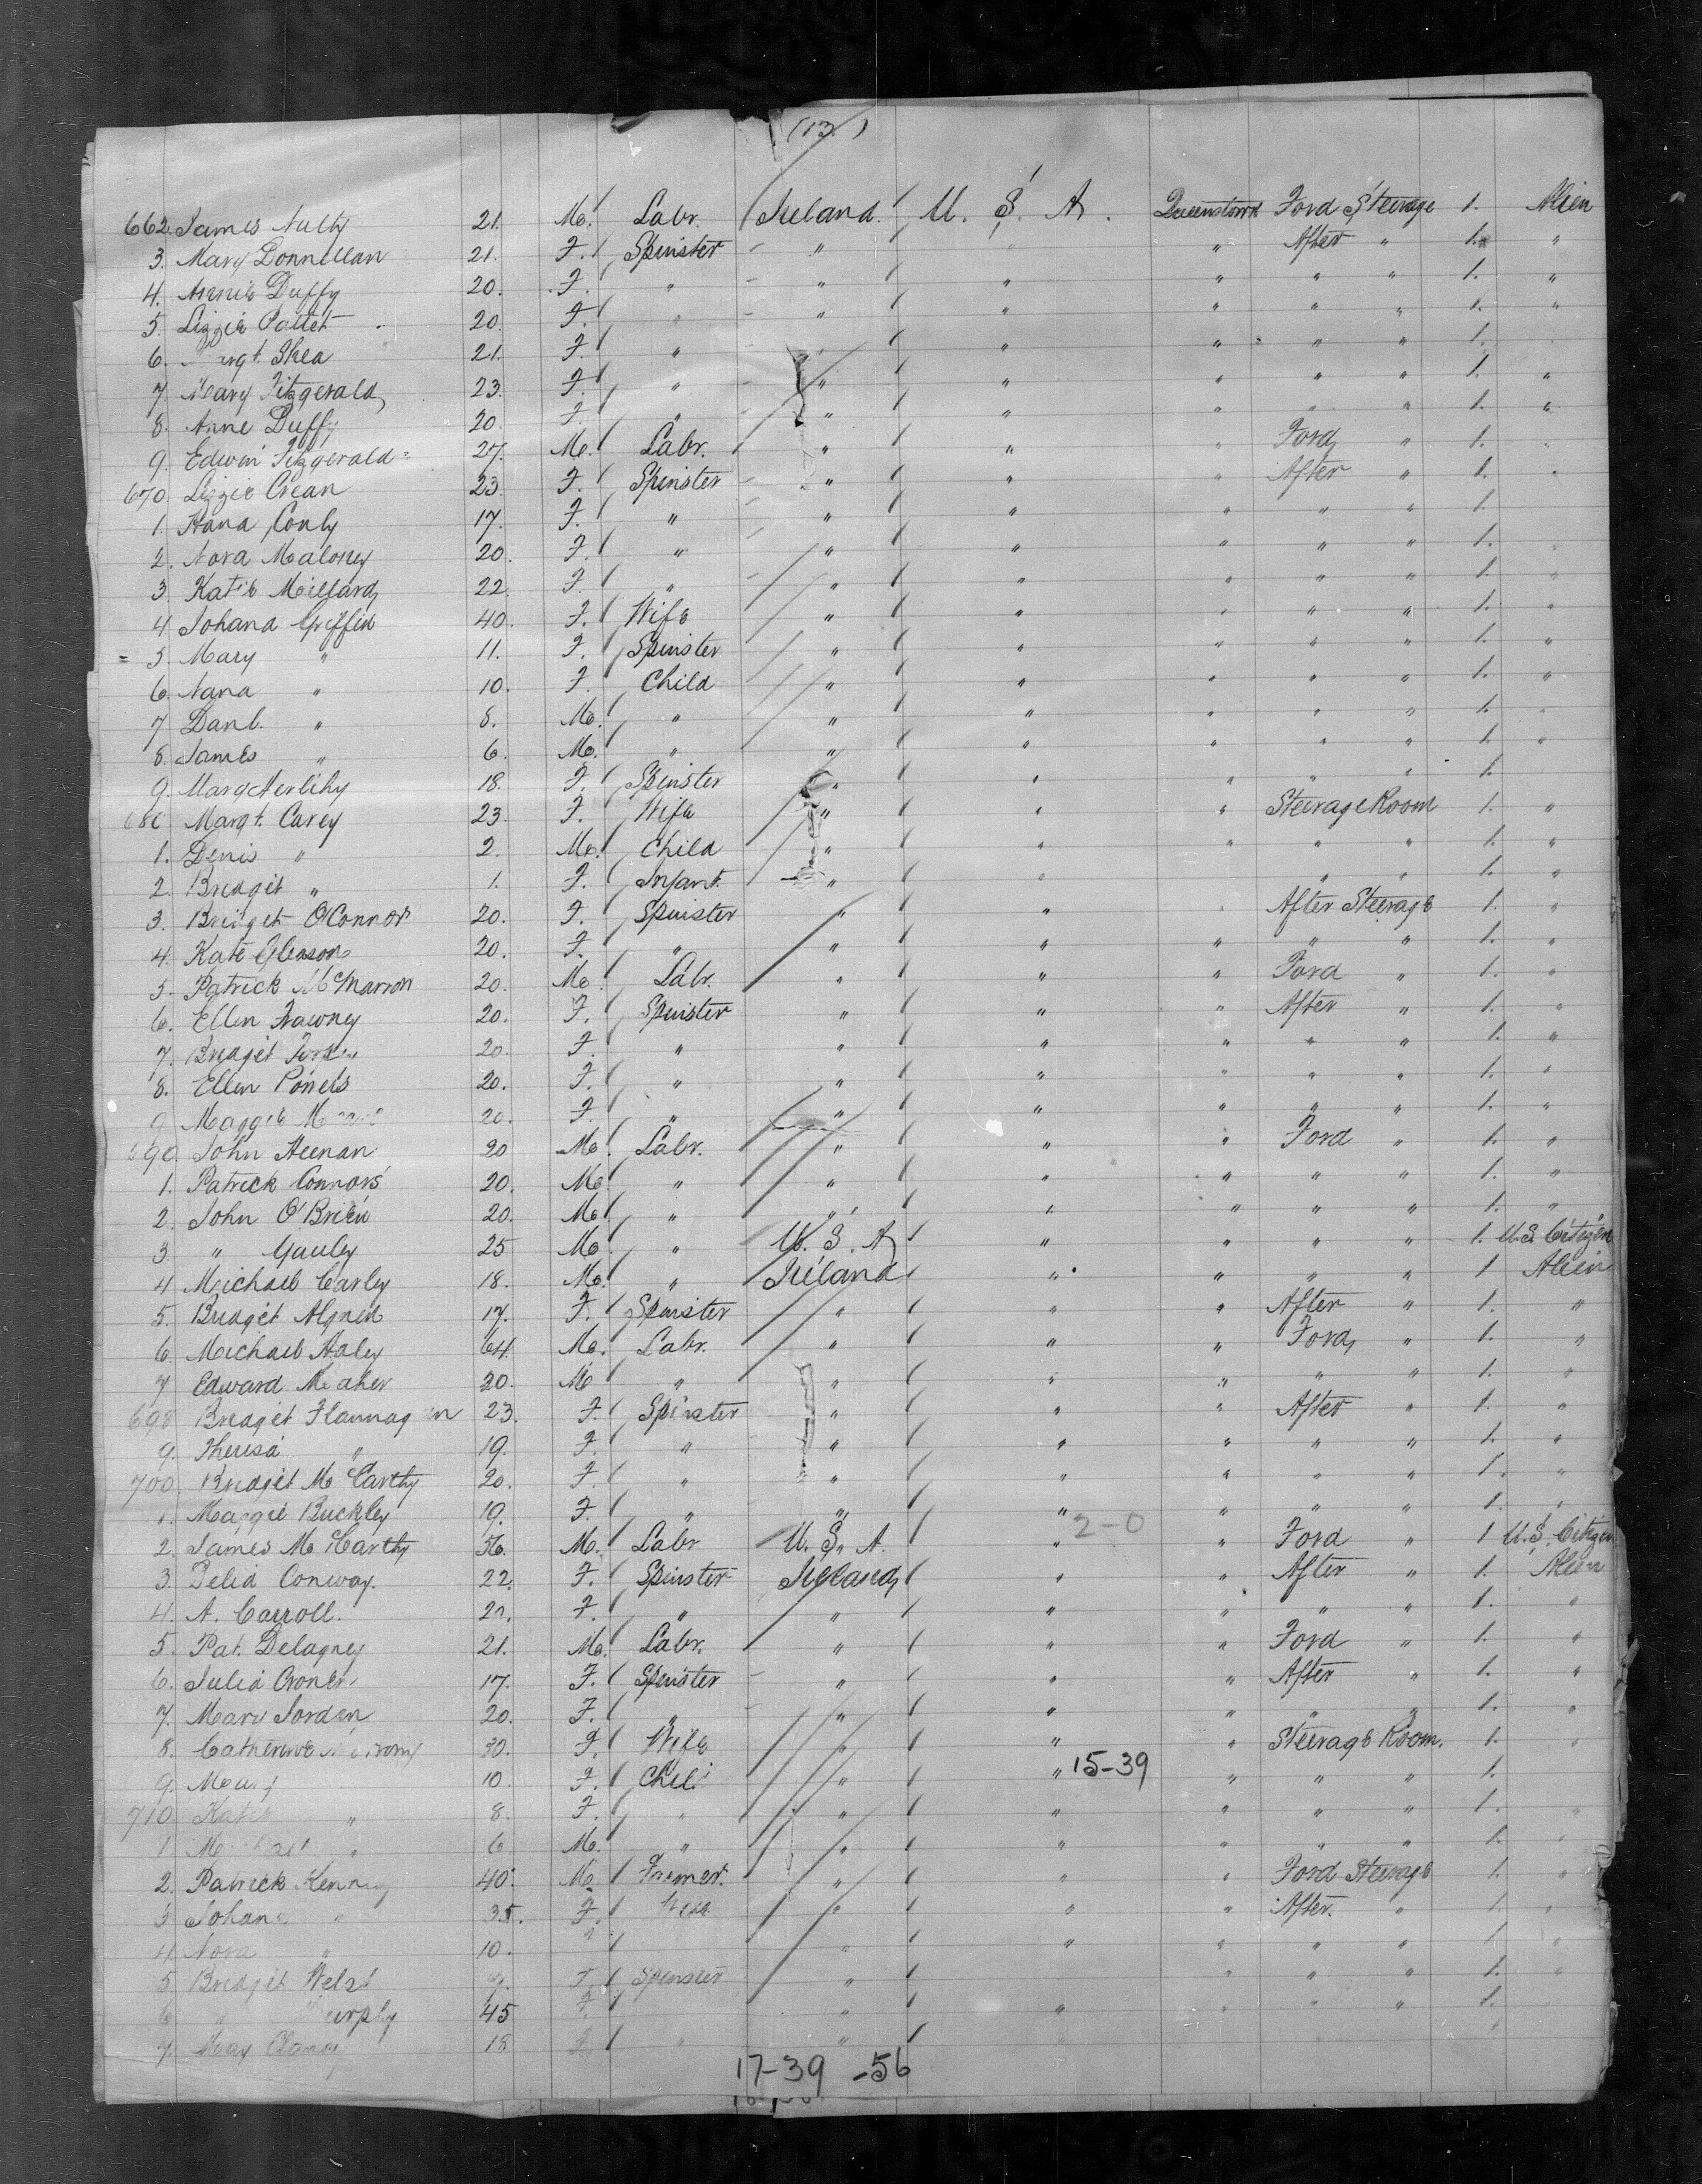 (13)
662. James Nulty 21. M. Labr. Ireland. U. S. A. Queenstown Ford Steerage 1. Alien
3. Mary Donnellan 21. F. Spinster " " " After " 1. "
4. Annie Duffy 20. F. " " " " " " 1. "
5. Lizzie 20. F. " " " " " " 1. "
6. Margt. Shea 21. F. " " " " " " 1.
7. Mary Fitzgerald 23. F. " " " " " " 1. "
8. Anne Duffy 20. F. " " " " " " 1. "
9. Edwin Fitzgerald 27. M. Labr. " " " Ford " 1. "
670. Lizzie Crean 23. F. Spinster " " " After " 1. "
1. Hana Conly 17. F. " " " " " " 1.
2. Nora Maloney 20. F. " " " " " " 1. "
3. Katie 22. F. " " " " " " 1. "
4. Johana Griffin 40. F. Wife " " " " " 1. "
= 5. Mary " 11. F. Spinster " " " " " 1. "
6. Nana " 10. F. Child " " " " " 1. "
7. Danl. " 8. M. " " " " " " 1. "
8. James " 6. M. " " " " " " 1. "
9. Mary Herlihy 18. F. Spinster " " " " " 1.
680 Margt. Carey 23. F. Wife " " " Steerage Room 1. "
1. Denis " 2. M. Child " " " " " 1. "
2. Bridget " 1. F. Infant. " " " " 1. "
3. Bridget O'Connor 20. F. Spinster " " " After Steerage 1. "
4. Kate Gleason 20. F. " " " " " " 1. "
5. Patrick McMarron 20. M. Labr. " " " Ford " 1. "
6. Ellen Frawney 20. F. Spinster " " " After " 1. "
7. Bridget 20. F. " " " " " " 1. "
8. Ellen 20. F. " " " " " " 1. "
9. Maggie 20. F. " " " " " " 1. "
690. John Heenan 20 M. Labr. " " " Ford " 1. "
1. Patrick Connors 20. M. " " " " " " 1. "
2. John O'Brien 20. M. " " " " " " 1. "
3. " Gauley 25 M. " U. S. A " " " " 1. U.S. Citizen
4 Michael Carley 18. M. " Ireland " " " " 1 Alien
5. Bridget Agnew 17. F. Spinster " " " After " 1. "
6. Michael Haley 64. M. Labr. " " " Ford " 1. "
7 Edward Meaher 20. M " " " " " " 1. "
698 Bridget Flannagan 23. F. Spinster " " " After " 1. "
9. Theresa " 19. F. " " " " " " 1. "
700. Bridget McCarthy 20. F. " " " " " " 1. "
1. Maggie Buckley 19. F. " " " " " " 1. "
2-0
2. James McCarthy 36. M. Labr U. S. A. " " Ford " 1 U.S. Citizen
3. Delia Conway. 22. F. Spinster Ireland " " After " 1. Alien
4. A. Carroll. 21. F. " " " " " " 1. "
5. Pat. Delagney 21. M. Labr. " " " Ford " 1. "
6. Julia 17. F. Spinster " " " After " 1. "
7. Mary Jordan 20. F. " " " " " " 1. "
8. Catherine 30. F. Wife " " " Steerage Room. 1. "
9. Mary 10. F. Child " " 15-39 " " " 1.
710 Katie " 8. F. " " " " " " 1. "
1 Michael " 6 M. " " " " " " 1. "
2. Patrick Kenny 40. M. Farmer. " " " Ford Steerage 1. "
3 Johana " 35. F. Wife " " " After. " 1. "
4. Nora " 10. " " " " " 1. "
5. Bridget F. Spinster " " " " 1. "
6 " Murphy 45 F. " " " " " 1.
7. May 18 F. " "
17-39 -56